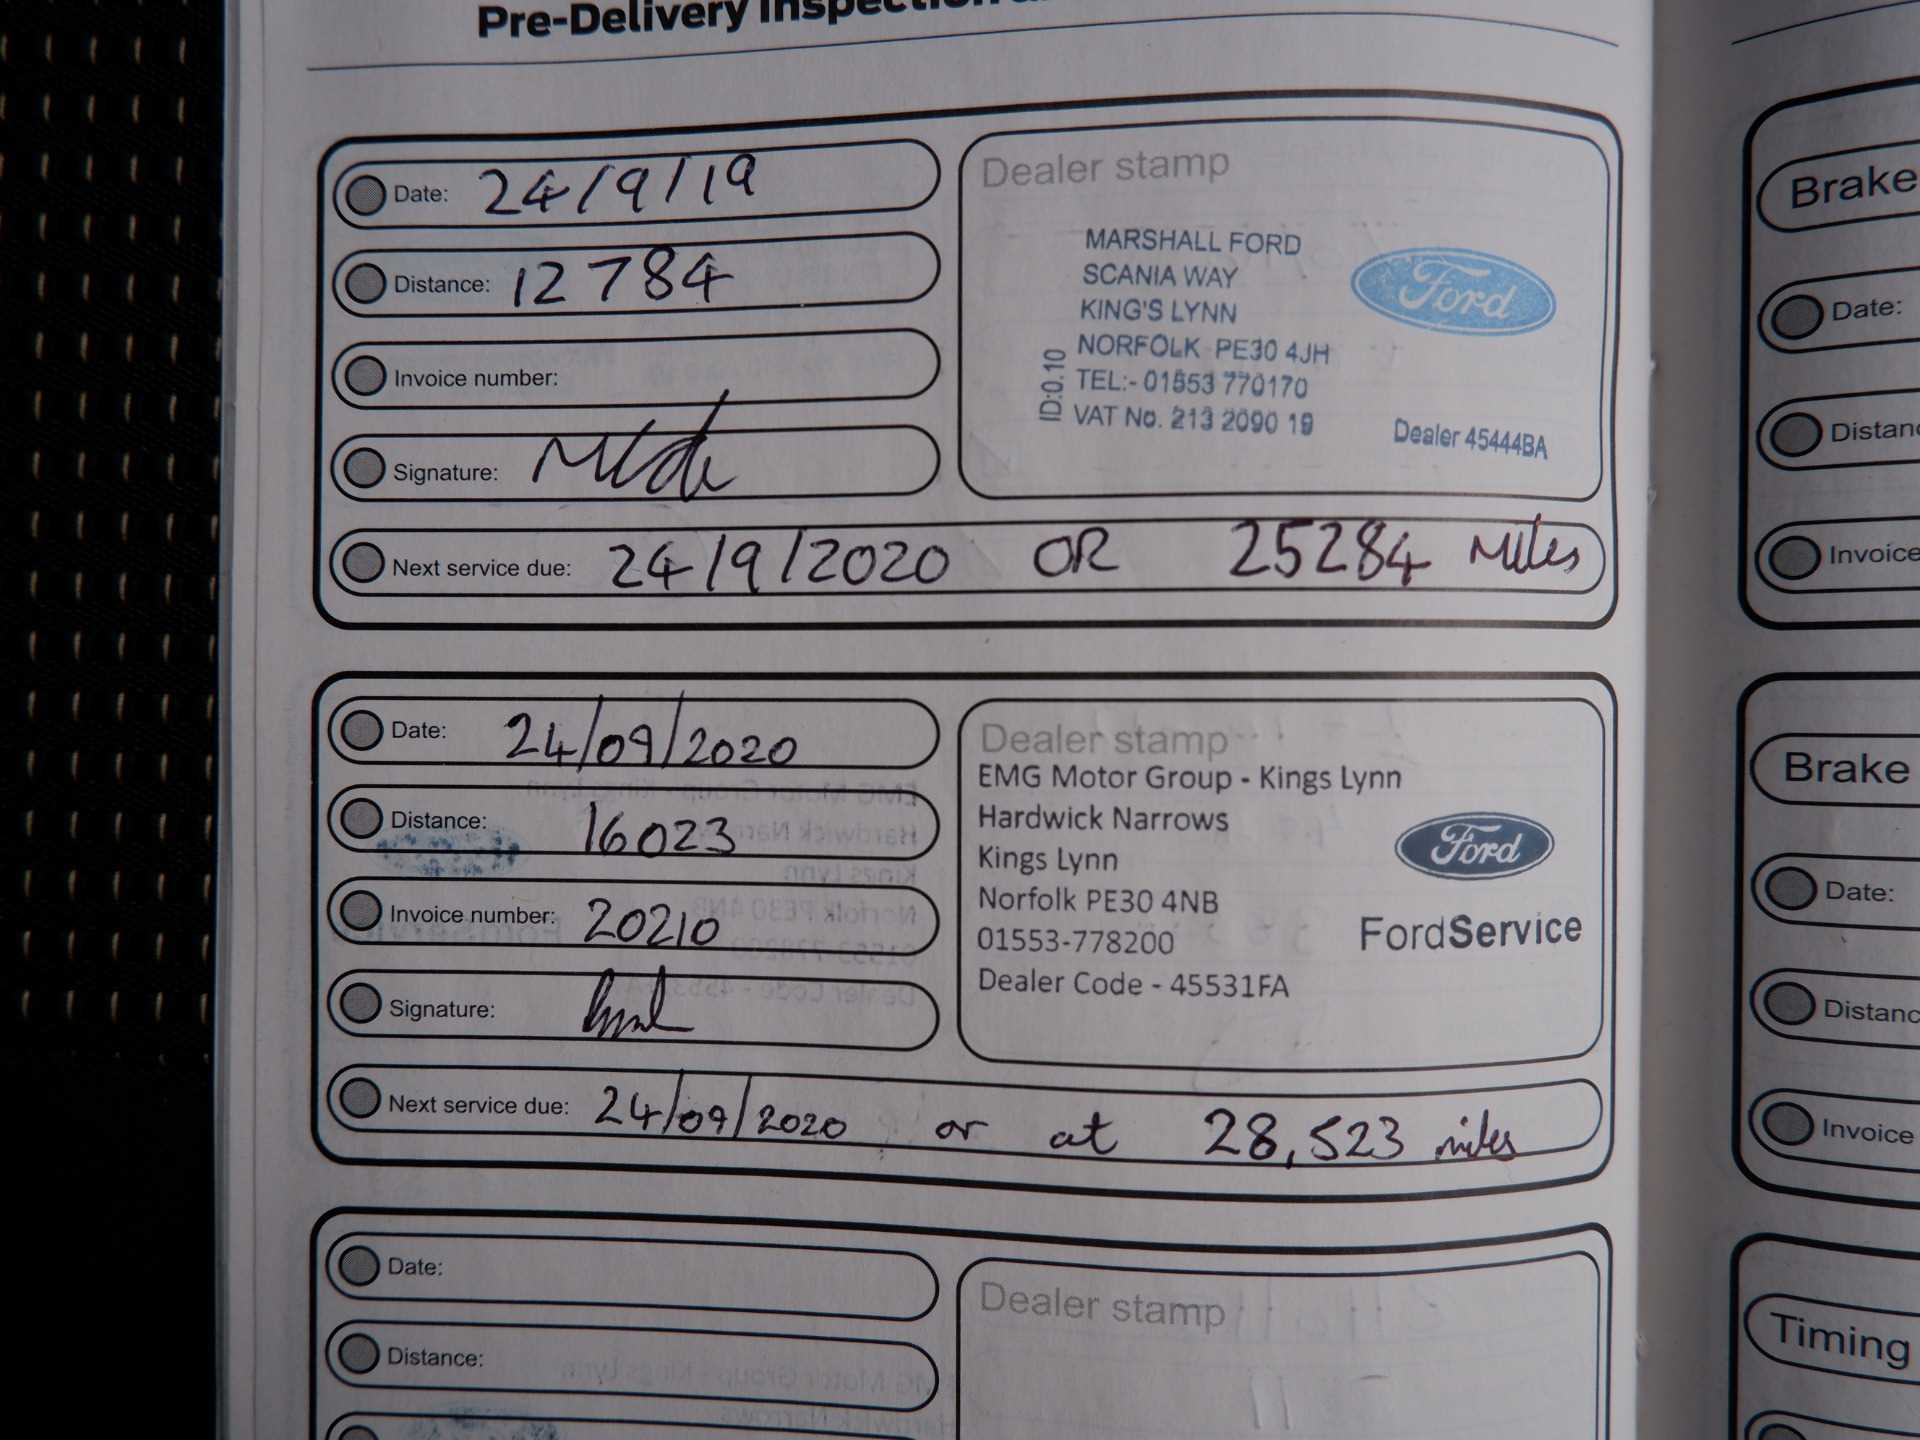 Pre-Delivery Inspection
Date: 24/9/19
Distance: 12784
Invoice number:
Signature:
Dealer stamp
MARSHALL FORD
SCANIA WAY
KING'S LYNN
NORFOLK PE30 4JH
TEL:- 01553 770170
VAT No. 213 2090 19
ID:0.10
Ford
Dealer 45444BA
Next service due: 24/9/2020 OR 25284 Miles
Date: 24/09/2020
Distance: 16023
Invoice number: 20210
Signature:
Dealer stamp
EMG Motor Group - Kings Lynn
Hardwick Narrows
Kings Lynn
Norfolk PE30 4NB
01553-778200
Dealer Code - 45531FA
Ford
FordService
Next service due: 24/09/2020 or at 28,523 miles
Date:
Distance:
Dealer stamp
Brake
Date:
Invoice
Brake
Date:
Invoice
Timing